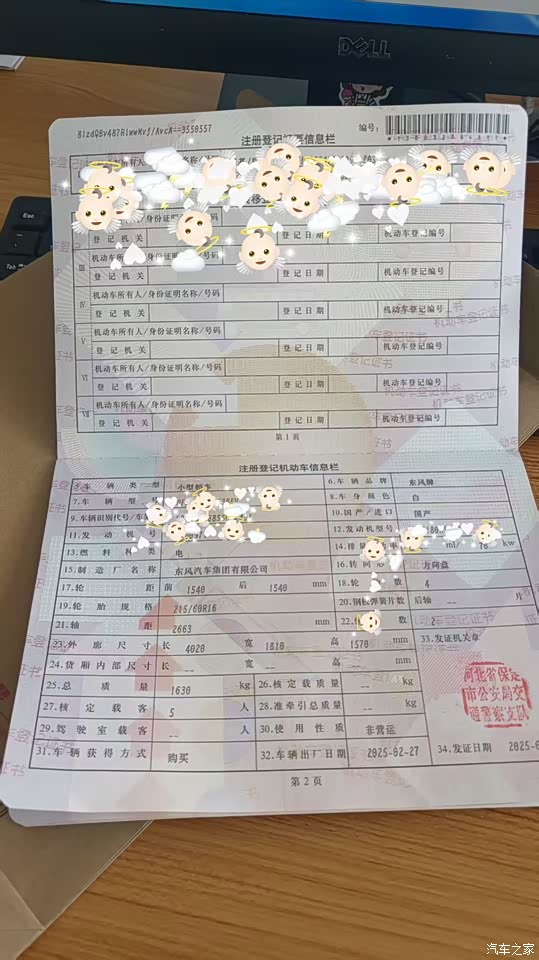 DELL
Esc
Tab
8lzdQBv487RlwwKvf/AvcA==3558557
编号:
注册登记 信息栏
机动车所有人/身份证明名称/号码
登记机关 登记日期 机动车登记编号
III 机动车所有人/身份证明名称/号码
登记机关 登记日期 机动车登记编号
IV 机动车所有人/身份证明名称/号码
登记机关 登记日期 机动车登记编号
V 机动车所有人/身份证明名称/号码
登记机关 登记日期 机动车登记编号
VI 机动车所有人/身份证明名称/号码
登记机关 登记日期 机动车登记编号
VII 机动车所有人/身份证明名称/号码
登记机关 登记日期 机动车登记编号
第1页
注册登记机动车信息栏
5.车辆类型 小型轿车 6.车辆品牌 东风牌
7.车辆型号 8.车身颜色 白
9.车辆识别代号/车 10.国产/进口 国产
11.发动机号 12.发动机型号
13.燃料种类 电 14.排 率 ml/ 70 kw
15.制造厂名称 东风汽车集团有限公司 16.转向形 方向盘
17.轮距 前 1540 后 1540 mm 18.轮数 4
19.轮胎规格 215/60R16 20.钢板弹簧片数 后轴 -- 片
21.轴距 2663 mm 22. 2
23.外廓尺寸 长 4020 宽 1810 高 1570 mm 33.发证机关章
24.货厢内部尺寸 长 -- 宽 -- 高 -- mm
25.总质量 1630 kg 26.核定载质量 -- kg
27.核定载客 5 人 28.准牵引总质量 -- kg
29.驾驶室载客 -- 人 30.使用性质 非营运
31.车辆获得方式 购买 32.车辆出厂日期 2025-02-27 34.发证日期 2025-
河北省保定
市公安局交
通警察支队
第2页
汽车之家